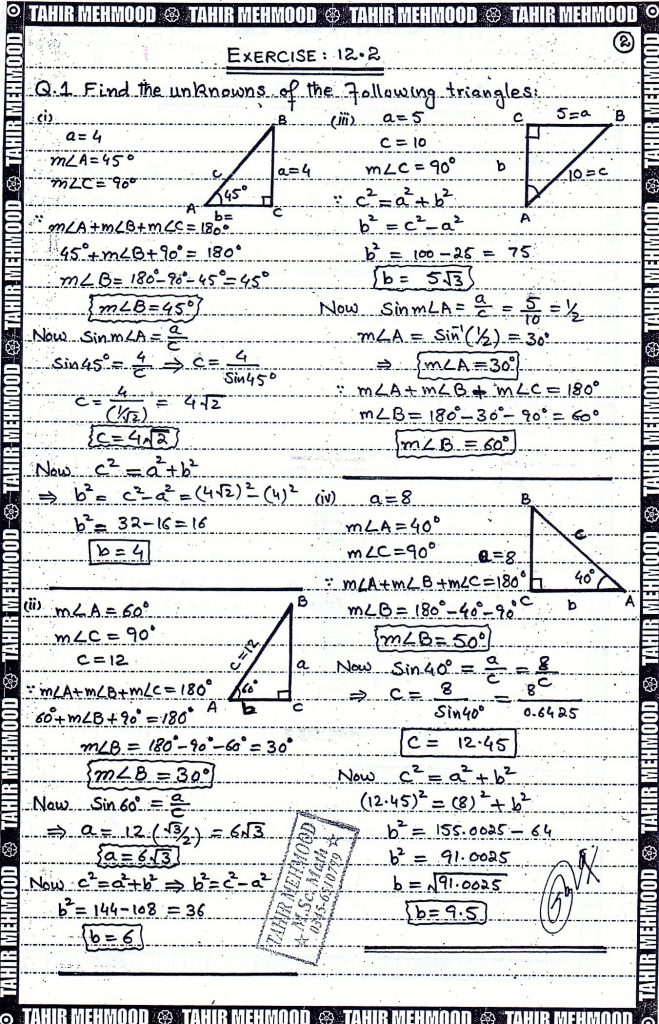 TAHIR MEHMOOD TAHIR MEHMOOD TAHIR MEHMOOD TAHIR MEHMOOD
2
EXERCISE: 12.2
Q.1 Find the unknowns of the following triangles:
(i)
a=4
m∠A=45°
m∠C=90°
B
c
a=4
45°
A
b=
C
∵ m∠A+m∠B+m∠C=180°
45°+m∠B+90°=180°
m∠B=180°-90°-45°=45°
m∠B=45°
Now Sin m∠A = a/c
Sin45° = 4/c ⇒ c = 4/Sin45°
c = 4/(1/√2) = 4√2
c=4√2
Now c²=a²+b²
⇒ b²= c²-a² =(4√2)²-(4)²
b²= 32-16=16
b=4
(ii) m∠A=60°
m∠C=90°
c=12
B
c=12
a
60°
A
b
C
∵ m∠A+m∠B+m∠C=180°
60°+m∠B+90°=180°
m∠B= 180°-90°-60°=30°
m∠B=30°
Now Sin60° = a/c
⇒ a= 12(√3/2) = 6√3
a=6√3
Now c²=a²+b² ⇒ b²=c²-a²
b²=144-108 =36
b=6
(iii) a=5
c=10
m∠C=90°
C
5=a
B
b
10=c
A
∵ c²=a²+b²
b²=c²-a²
b² = 100-25 = 75
b= 5√3
Now Sin m∠A = a/c = 5/10 = 1/2
m∠A = Sin⁻¹(1/2)=30°
⇒ m∠A=30°
∵ m∠A+m∠B+m∠C=180°
m∠B=180°-30°-90°=60°
m∠B=60°
(iv) a=8
m∠A=40°
m∠C=90°
B
c
a=8
40°
C
b
A
∵ m∠A+m∠B+m∠C=180°
m∠B=180°-40°-90°
m∠B=50°
Now Sin40° = a/c = 8/c
⇒ c = 8/Sin40° = 8/0.6425
c = 12.45
Now c²=a²+b²
(12.45)²=(8)²+b²
b²= 155.0025-64
b² = 91.0025
b=√91.0025
b=9.5
TAHIR MEHMOOD
M.Sc. Math
0345-6510779
TAHIR MEHMOOD TAHIR MEHMOOD TAHIR MEHMOOD TAHIR MEHMOOD